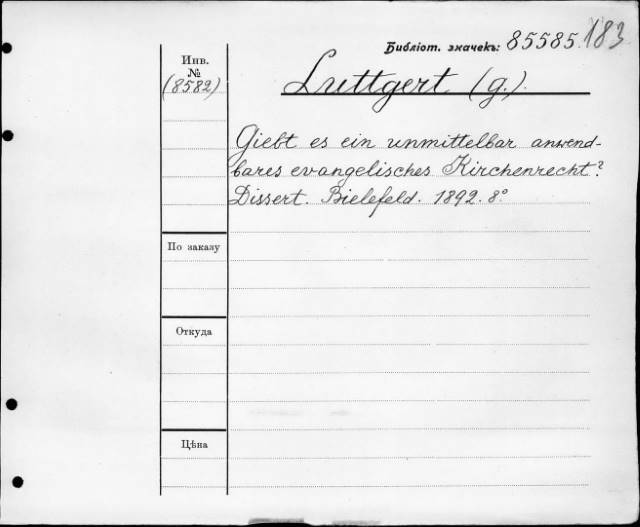 Библіот. значекъ: 85585.183
Инв.
№
(8582)
Luttgert (g.).
Giebt es ein unmittelbar anwend-
bares evangelisches Kirchenrecht?
Dissert. Bielefeld. 1892. 8°
По заказу
Откуда
Цѣна